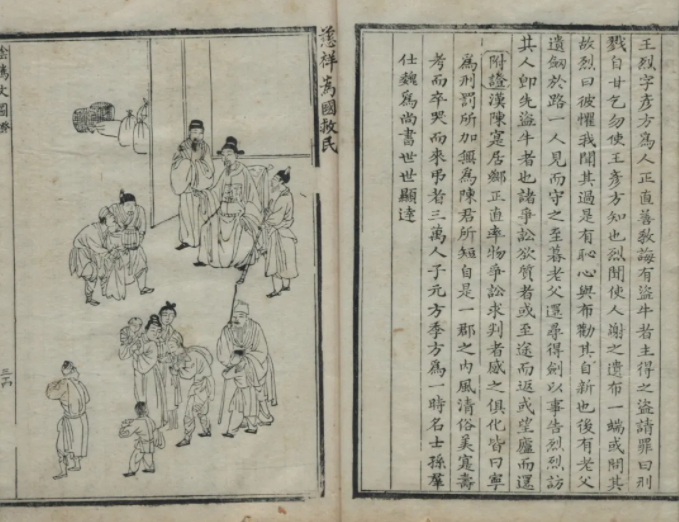 王烈字彥方爲人正直善教誨有盜牛者主得之盜請罪曰刑
戮自甘乞勿使王彥方知也烈聞使人謝之遺布一端或問其
故烈曰彼懼我聞其過是有恥心與布勸其自新也後有老父
遺劒於路一人見而守之至暮老父還尋得劍以事告烈烈訪
其人卽先盜牛者也諸爭訟欲質者或至途而返或望廬而還
附證漢陳寔居鄉正直率物爭訟求判者感之俱化皆曰寧
爲刑罰所加無爲陳君所短自是一郡之內風清俗美寔壽
考而卒哭而來弔者三萬人子元方季方爲一時名士孫羣
仕魏爲尚書世世顯達
慈祥爲國救民